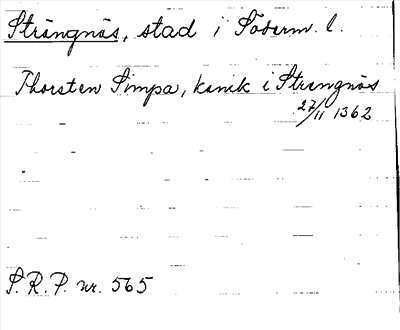 Strängnäs, stad i Söderm. l.
Thorsten Simpa, kanik i Strengnäs
27/11 1362
S. R. P. nr. 565